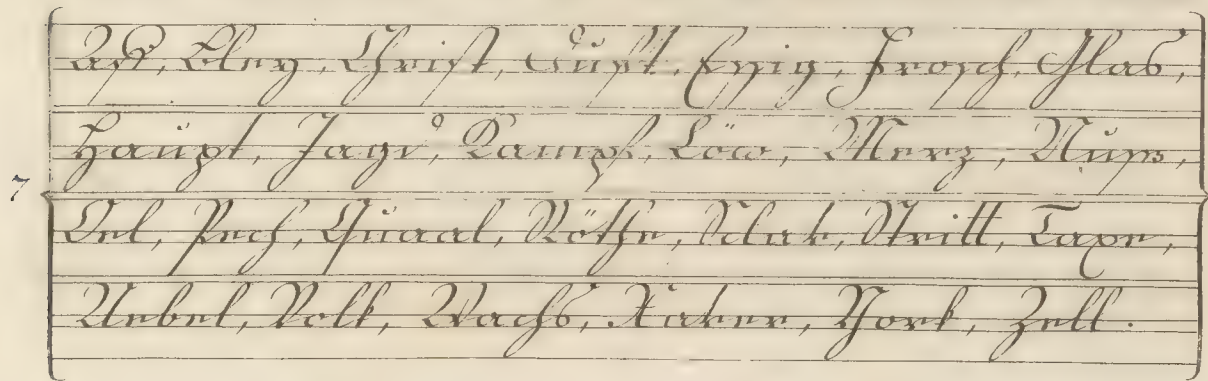 Ast, Bley, Christ, Duft, Essig, Frosch, Glas,
Haupt, Jagd, Kampf, Löw, Merz, Nuß,
7
Oel, Pech, Quaal, Röthe, Sclav, Stritt, Taxe,
Uebel, Volk, Wachs, Xaver, York, Zell.